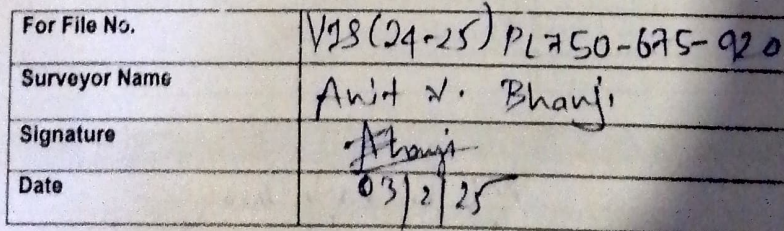 For File No. VIS(24-25) PL750-675-920
Surveyor Name Anit N. Bhanji
Signature Bhanji
Date 03/2/25